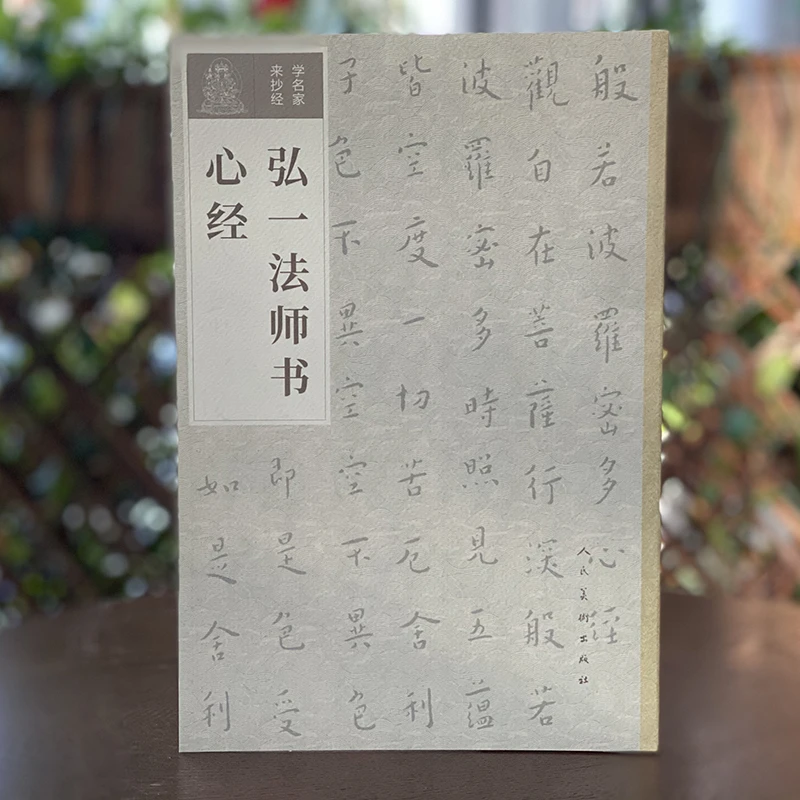 学名家
来抄经
弘一法师书
心经
般若波羅密多心経
觀自在菩薩行深般若
波羅密多時照見五蘊
皆空度一切苦厄舍利
子色不異空空不異色
即是色受
如是舍利
人民美術出版社